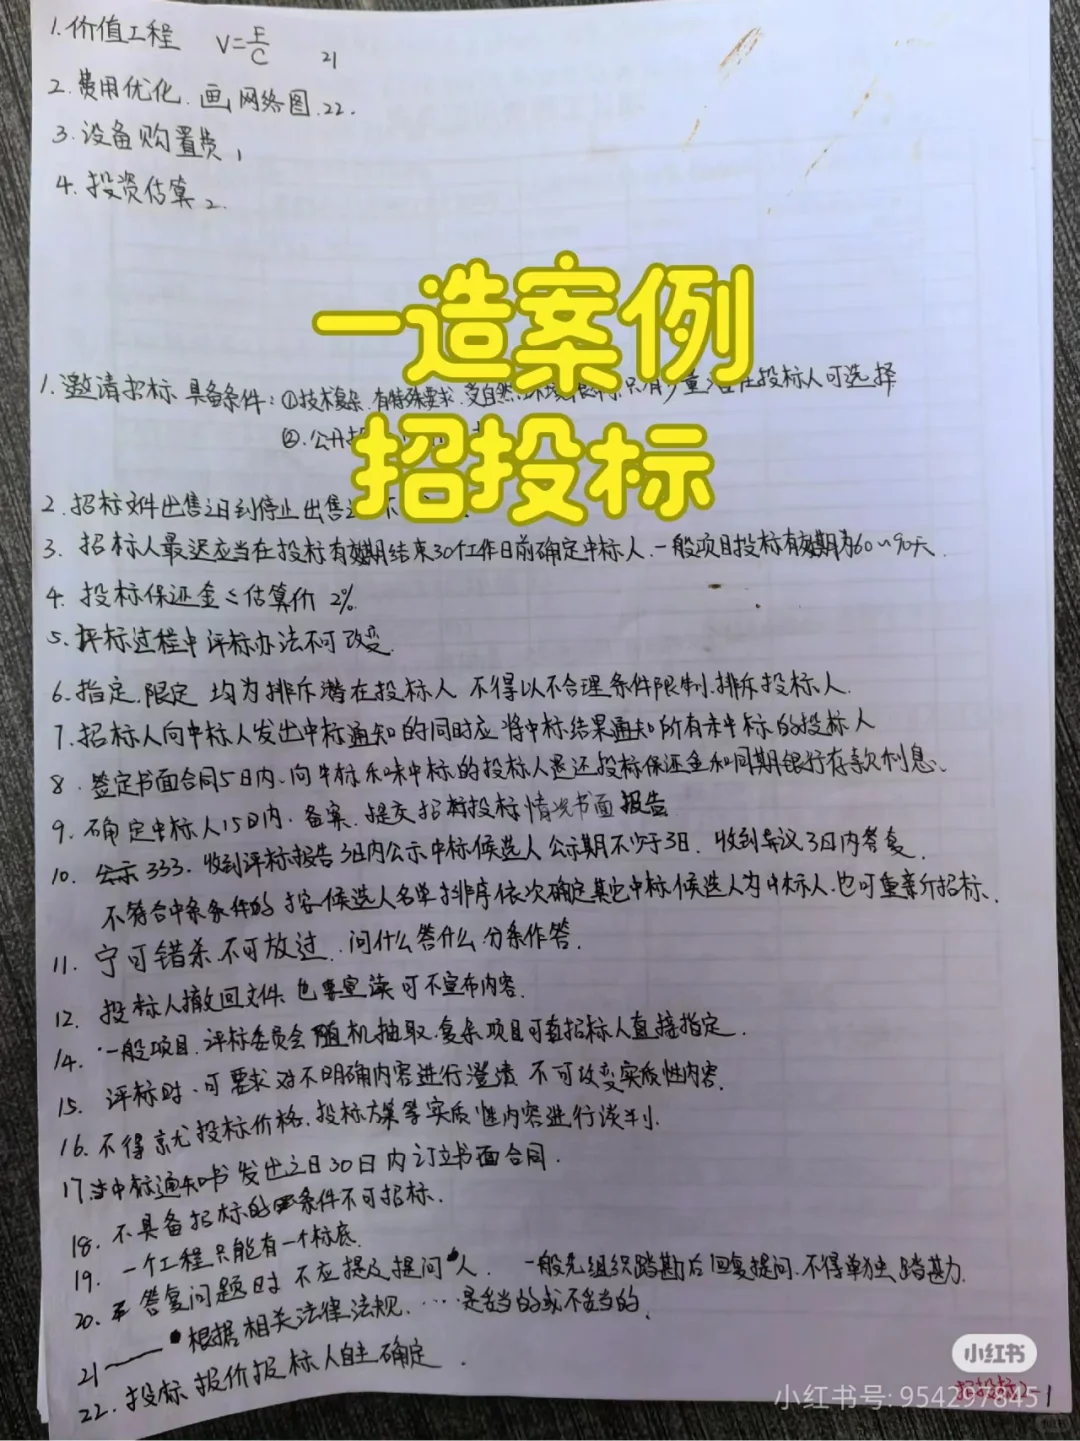 1.价值工程 V=F/C 21
2.费用优化.画网络图.22.
3.设备购置费1
4.投资估算2.
一造案例
招投标
1.邀请招标 具备条件:①技术复杂.有特殊要求.受自然环境限制.只有少量潜在投标人可选择
②.公开招
2.招标文件出售之日到停止出售之 不
3.招标人最迟应当在投标有效期结束30个工作日前确定中标人.一般项目投标有效期为60~90天.
4.投标保证金≤估算价2%.
5.评标过程中评标办法不可改变.
6.指定.限定 均为排斥潜在投标人 不得以不合理条件限制.排斥投标人.
7.招标人向中标人发出中标通知的同时应将中标结果通知所有未中标的投标人
8.签定书面合同5日内.向中标和未中标的投标人退还投标保证金和同期银行存款利息.
9.确定中标人15日内.备案.提交招标投标情况书面报告
10.公示333.收到评标报告3日内公示中标候选人公示期不少于3日.收到异议3日内答复.
不符合中标条件的 按候选人名单排序依次确定其它中标候选人为中标人.也可重新招标.
11.宁可错杀不可放过.问什么答什么.分条作答.
12.投标人撤回文件 也要宣读 可不宣布内容.
14.一般项目.评标委员会随机抽取.复杂项目可直招标人直接指定.
15.评标时.可要求对不明确内容进行澄清 不可改变实质性内容.
16.不得就投标价格.投标方案等实质性内容进行谈判.
17.中标通知书发出之日30日内订立书面合同.
18.不具备招标的条件不可招标.
19.一个工程只能有一个标底.
20.答复问题时 不应提及提问人. 一般先组织踏勘后回复提问.不得单独踏勘.
21——根据相关法律法规.…是妥当的或不妥当的.
22.投标报价投标人自主确定.
小红书
小红书号:954297845
招投标2-1